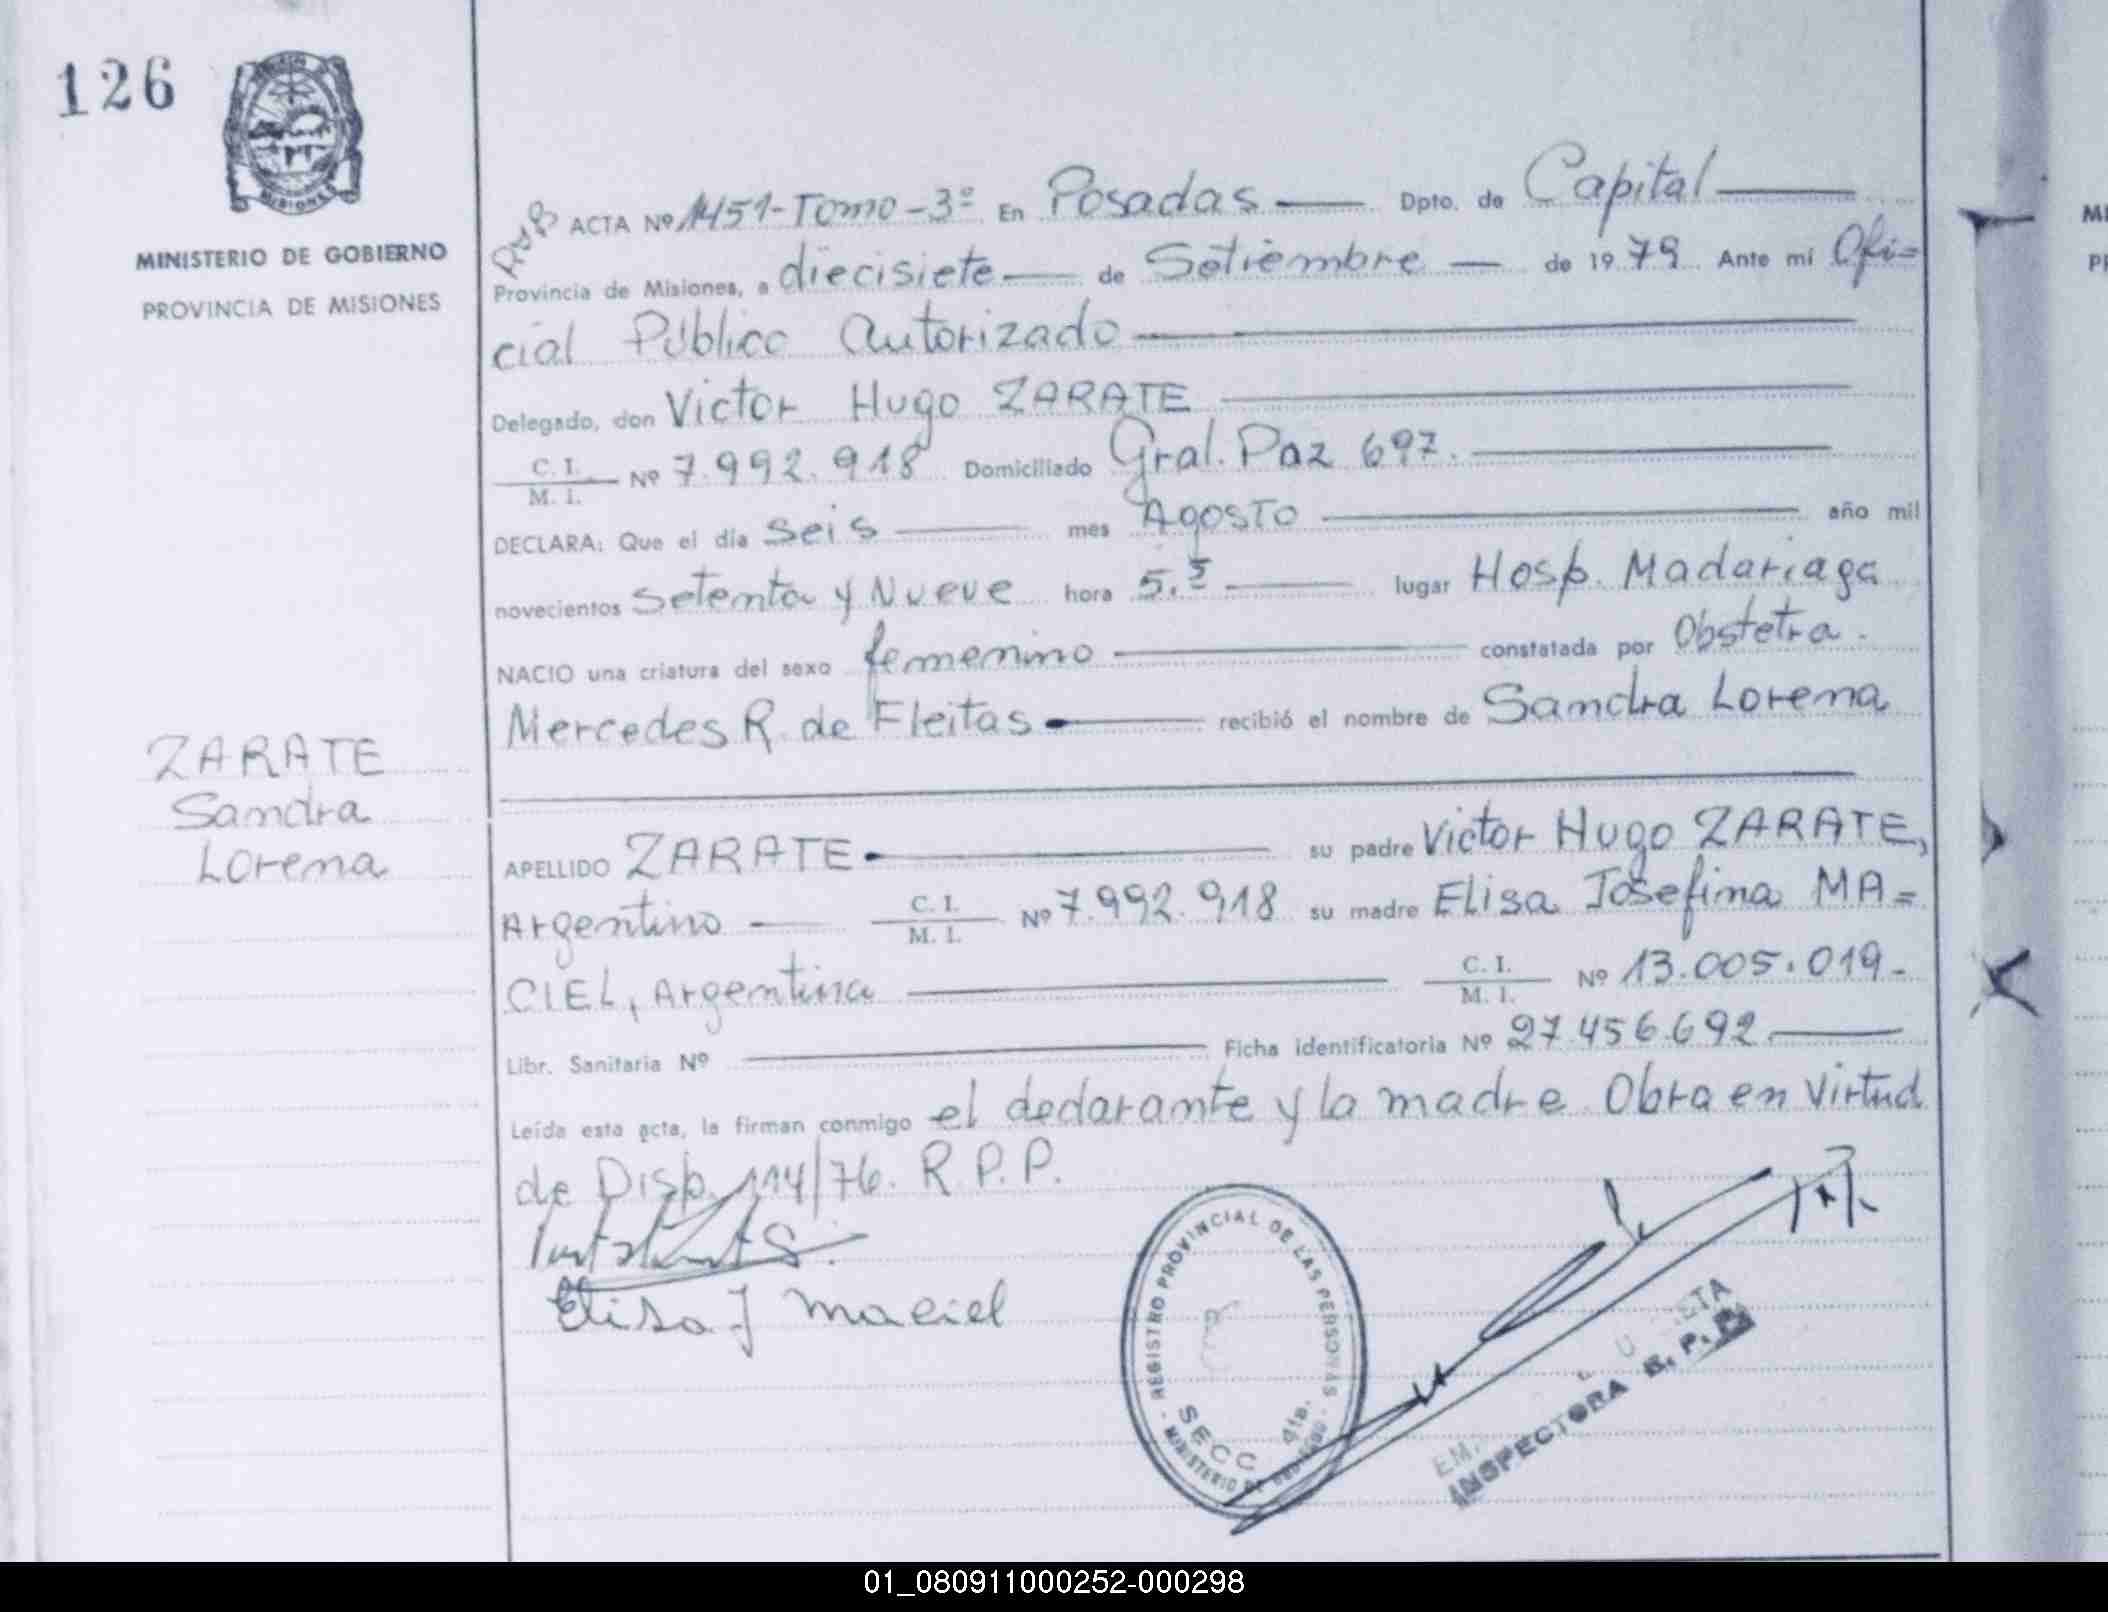 126
MINISTERIO DE GOBIERNO
PROVINCIA DE MISIONES
ACTA Nº 1451-Tomo-3º En Posadas Dpto. de Capital
Provincia de Misiones, a diecisiete de Setiembre de 1979 Ante mí Ofi=
cial Público Autorizado
Delegado, don Victor Hugo ZARATE
C. I.
M. I. Nº 7.992.918 Domiciliado Gral. Paz 697.
DECLARA: Que el día seis mes Agosto año mil
novecientos Setenta y Nueve hora 5.5 lugar Hosp. Madariaga
NACIO una criatura del sexo femenino constatada por Obstetra.
Mercedes R. de Fleitas recibió el nombre de Sandra Lorena
ZARATE
Sandra
Lorena
APELLIDO ZARATE su padre Victor Hugo ZARATE,
Argentino C. I. M. I. Nº 7.992.918 su madre Elisa Josefina MA=
CIEL, Argentina C. I. M. I. Nº 13.005.019-
Libr. Sanitaria Nº Ficha identificatoria Nº 27.456.692
Leída esta acta, la firman conmigo el declarante y la madre Obra en virtud
de Disp. 114/76. R.P.P.
Elisa J Maciel
REGISTRO PROVINCIAL DE LAS PERSONAS
SECC 4ta.
MINISTERIO DE GOBIERNO
INSPECTORA R. P. P.
01_080911000252-000298